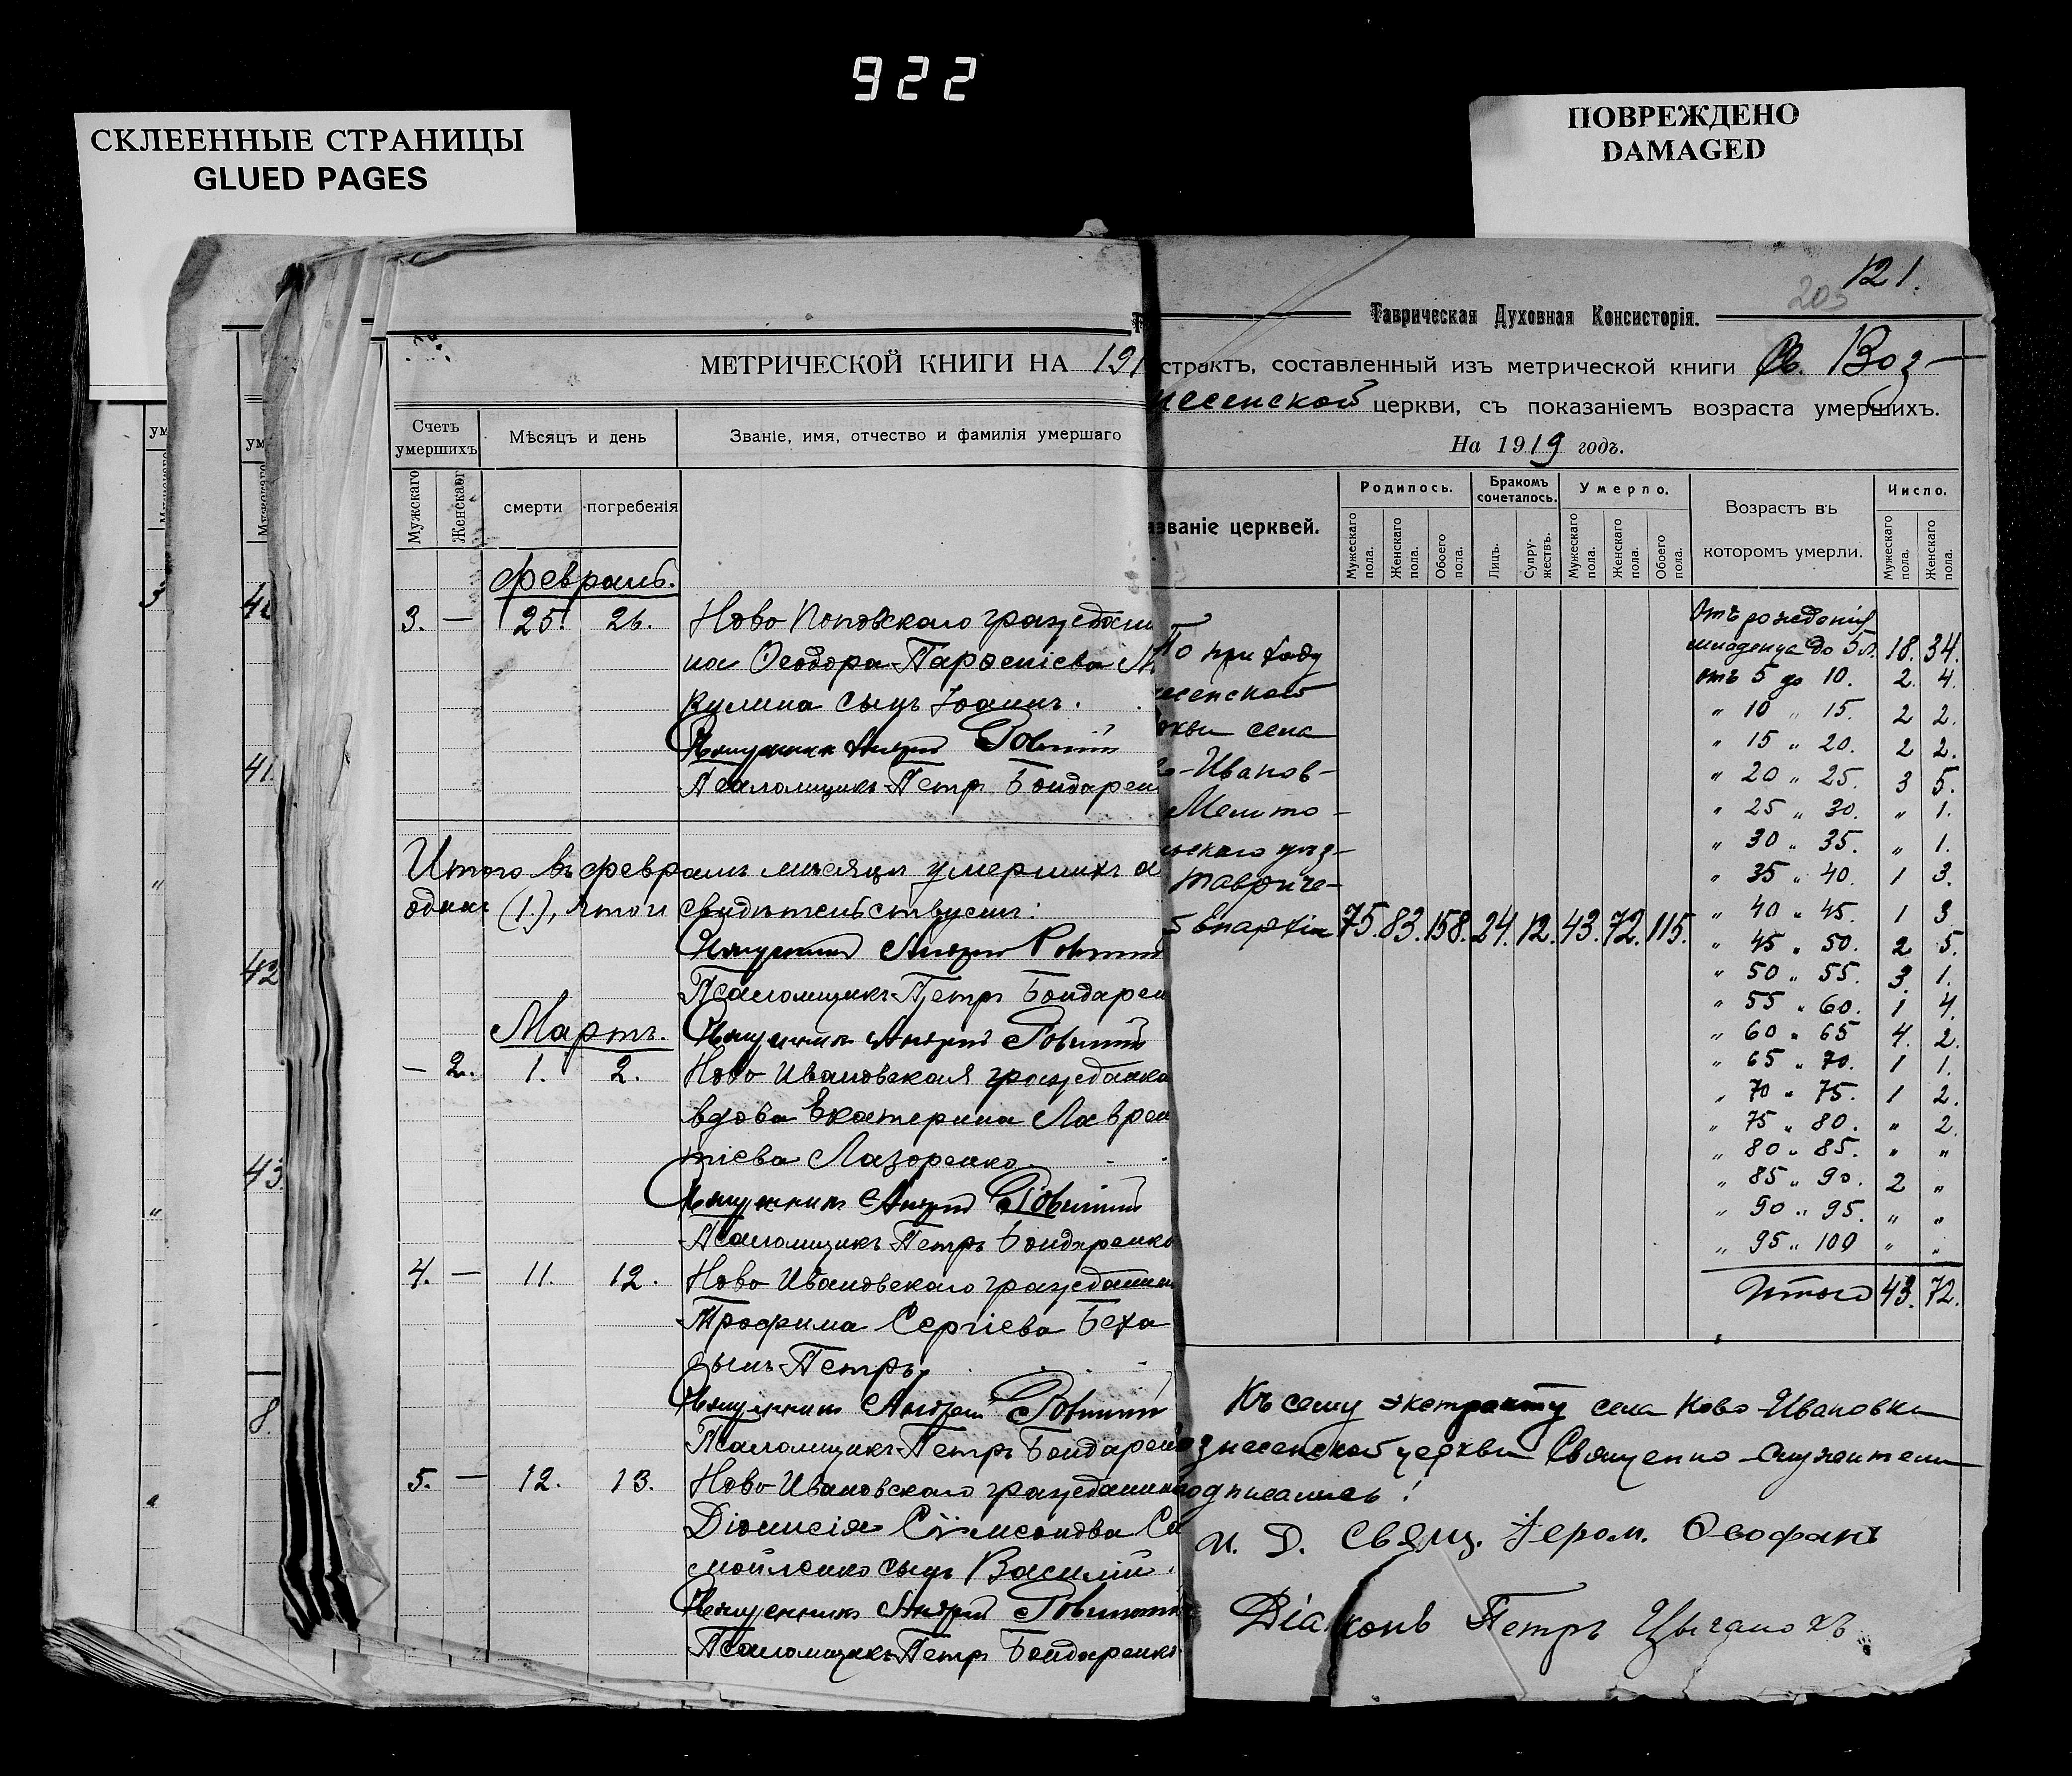 922
СКЛЕЕННЫЕ СТРАНИЦЫ
GLUED PAGES
ПОВРЕЖДЕНО
DAMAGED
МЕТРИЧЕСКОЙ КНИГИ НА 191
Счетъ умершихъ
Мѣсяцъ и день
Званіе, имя, отчество и фамилія умершаго
Мужскаго
Женскаго
смерти
погребенія
февраль.
3. — 25. 26. Ново Поповскаго граждани
на Ѳеодора Парѳеніева
кулина сынъ Іоаннъ.
Священникъ Андрей
Псаломщикъ Петръ Бондарен
Итого въ февралѣ мѣсяцѣ умершихъ
одинъ (1.), что и свидѣтельствуемъ:
Священникъ Андрей
Псаломщикъ Петръ Бондарен
Мартъ. Священникъ Андрей
— 2. 1. 2. Ново Ивановская гражданка
вдова Екатерина Лаврен
тіева Лазоренко
Священникъ Андрей
Псаломщикъ Петръ Бондаренко
4. — 11. 12. Ново Ивановскаго граждани
Трофима Сергіева Беха
сынъ Петръ.
Священникъ Андрей
Псаломщикъ Петръ Бондарен
5. — 12. 13. Ново Ивановскаго граждани
Діонисія Са
мойленко сынъ Василій.
Священникъ Андрей
Псаломщикъ Петръ Бондаренко
40
41.
42
43.
8.
121.
205
Таврическая Духовная Консисторія.
страктъ, составленный изъ метрической книги Св. Воз-
несенской церкви, съ показаніемъ возраста умершихъ.
На 1919 годъ.
званіе церквей.
Родилось.
Бракомъ сочеталось.
Умерло.
Возрастъ въ которомъ умерли.
Число.
Мужескаго пола.
Женскаго пола.
Обоего пола.
Лицъ.
Супружествъ.
Мужескаго пола.
Женскаго пола.
Обоего пола.
Мужескаго пола.
Женскаго пола.
По приходу
несенской
ркви села
о-Иванов-
Мелито-
льскаго уѣз-
Тавриче-
Епархіи 75. 83. 158. 24. 12. 43. 72. 115.
Отъ рожденія
младенца до 5 л. 18. 34.
отъ 5 до 10. 2. 4.
" 10 " 15. 2 2.
" 15 " 20. 2 2.
" 20 " 25. 3 5.
" 25 " 30. " 1.
" 30 " 35. " 1.
" 35 " 40. 1 3.
" 40 " 45. 1 3.
" 45 " 50. 2 5.
" 50 " 55. 3. 1.
" 55 " 60. 1 4.
" 60 " 65 4. 2.
" 65 " 70. 1 1.
" 70 " 75. 1 2.
" 75 " 80. " 2.
" 80 " 85. " "
" 85 " 90. 2 "
" 90 " 95. " "
" 95 " 100 " "
Итого 43. 72.
Къ сему экстракту села Ново-Ивановки
ознесенской церкви Священно-служители
одписались:
И. Д. Свящ. Іером. Ѳеофанъ
Діаконъ Петръ